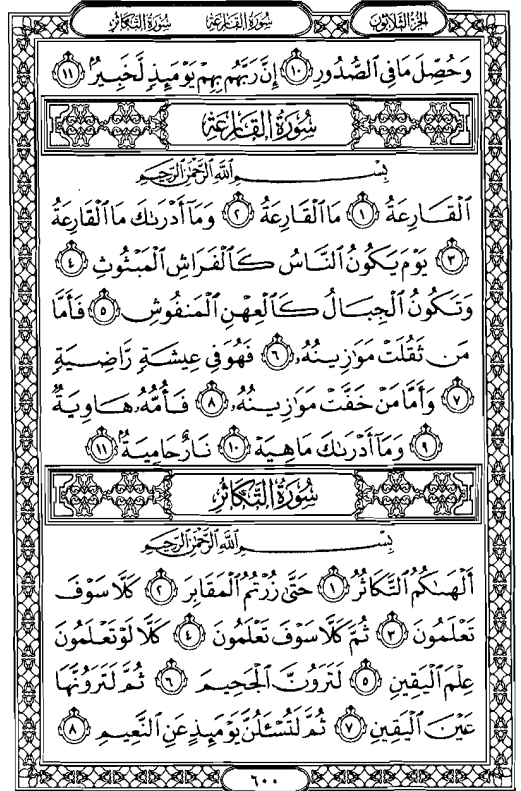 سُورَةُ التَّكَاثُرِ سُورَةُ القَارِعَةِ الجُزْءُ الثَّلَاثُونَ
وَحُصِّلَ مَا فِي ٱلصُّدُورِ ١٠ إِنَّ رَبَّهُم بِهِمْ يَوْمَئِذٍ لَّخَبِيرٌۢ ١١
سُورَةُ القَارِعَةِ
بِسْمِ ٱللَّهِ ٱلرَّحْمَٰنِ ٱلرَّحِيمِ
ٱلْقَارِعَةُ ١ مَا ٱلْقَارِعَةُ ٢ وَمَآ أَدْرَىٰكَ مَا ٱلْقَارِعَةُ
٣ يَوْمَ يَكُونُ ٱلنَّاسُ كَٱلْفَرَاشِ ٱلْمَبْثُوثِ ٤
وَتَكُونُ ٱلْجِبَالُ كَٱلْعِهْنِ ٱلْمَنفُوشِ ٥ فَأَمَّا
مَن ثَقُلَتْ مَوَٰزِينُهُۥ ٦ فَهُوَ فِي عِيشَةٍ رَّاضِيَةٍ
٧ وَأَمَّا مَنْ خَفَّتْ مَوَٰزِينُهُۥ ٨ فَأُمُّهُۥ هَاوِيَةٌ
٩ وَمَآ أَدْرَىٰكَ مَا هِيَهْ ١٠ نَارٌ حَامِيَةٌۢ ١١
سُورَةُ التَّكَاثُرِ
بِسْمِ ٱللَّهِ ٱلرَّحْمَٰنِ ٱلرَّحِيمِ
أَلْهَىٰكُمُ ٱلتَّكَاثُرُ ١ حَتَّىٰ زُرْتُمُ ٱلْمَقَابِرَ ٢ كَلَّا سَوْفَ
تَعْلَمُونَ ٣ ثُمَّ كَلَّا سَوْفَ تَعْلَمُونَ ٤ كَلَّا لَوْ تَعْلَمُونَ
عِلْمَ ٱلْيَقِينِ ٥ لَتَرَوُنَّ ٱلْجَحِيمَ ٦ ثُمَّ لَتَرَوُنَّهَا
عَيْنَ ٱلْيَقِينِ ٧ ثُمَّ لَتُسْـَٔلُنَّ يَوْمَئِذٍ عَنِ ٱلنَّعِيمِ ٨
٦٠٠